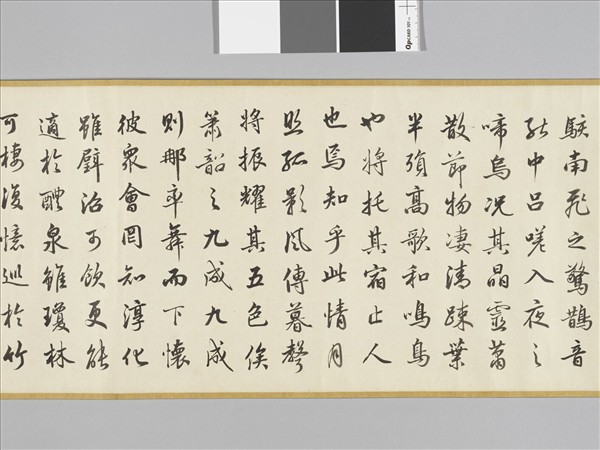 駭南飛之驚鵲音
能中呂嗟入夜之
啼烏況其晶靈蕭
散節物淒清疎葉
半殞高歌和鳴鳥
也將托其宿止人
也焉知乎此情月
照孤影風傳暮聲
將振耀其五色俟
簫韶之九成九成
則那率舞而下懷
彼眾會罔知淳化
雖璧沼可飲更能
適於醴泉雖瓊林
可棲復憶巡於竹
OpCARD